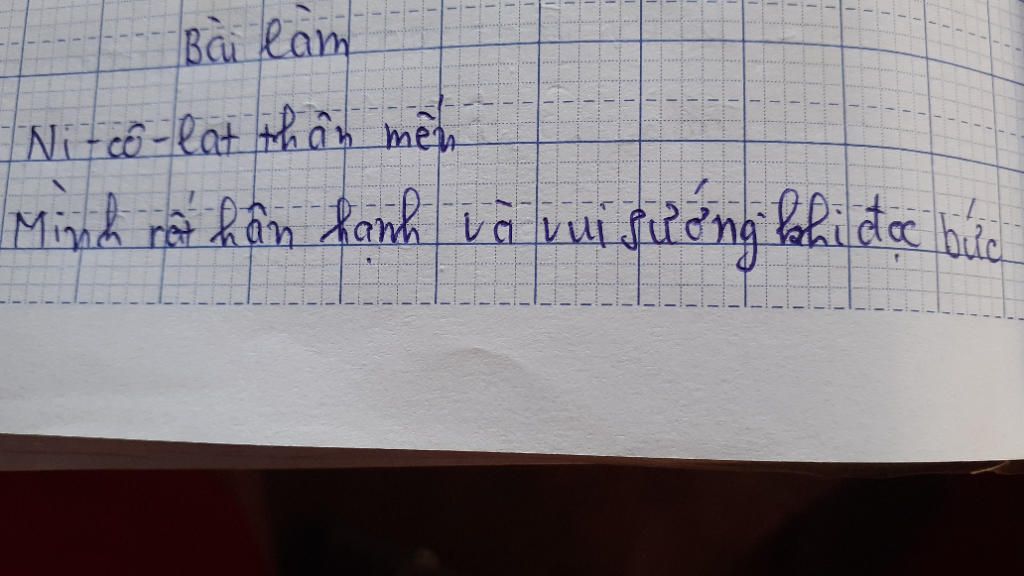 Bài làm
Ni-cô-lat thân mến
Mình rất hân hạnh và vui sướng khi đọc bức